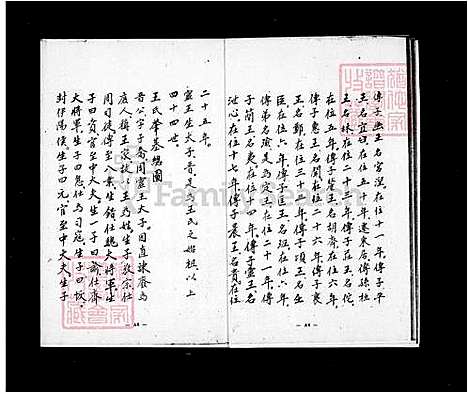 傳子幽王名宮湼在位十一年傳子平
王名宜臼在位五十年遷東居傳孫桓
王名林在位二十三年傳子莊王名佗
在位十五年傳子僖王名胡齊在位五年
傳子惠王名閬在位二十六年傳子襄
王名鄭在位三十三年傳子頃王名壬
臣在位六年傳子匡王名班在位六年
傳弟名瑜是為定王在位二十一年傳
子簡王名夷在位十四年傳子靈王名
泄心在位十七年傳子景王名貴在位
二十五年。
靈王生太子晉是為王氏之始祖以上
四十四世。
王氏肇基總圖
晉公字子喬周靈王太子因直諫廢為
庶人稱王家號以王為姓生子敬宗仕
周司徒傳至八葉生錯任魏大將軍生
子曰賁官至中大夫生一子曰渝仕齊
大將軍生子曰息仕為司寇生子曰恢
封伊陽侯生子四元官至中大夫生子
FamilySearch